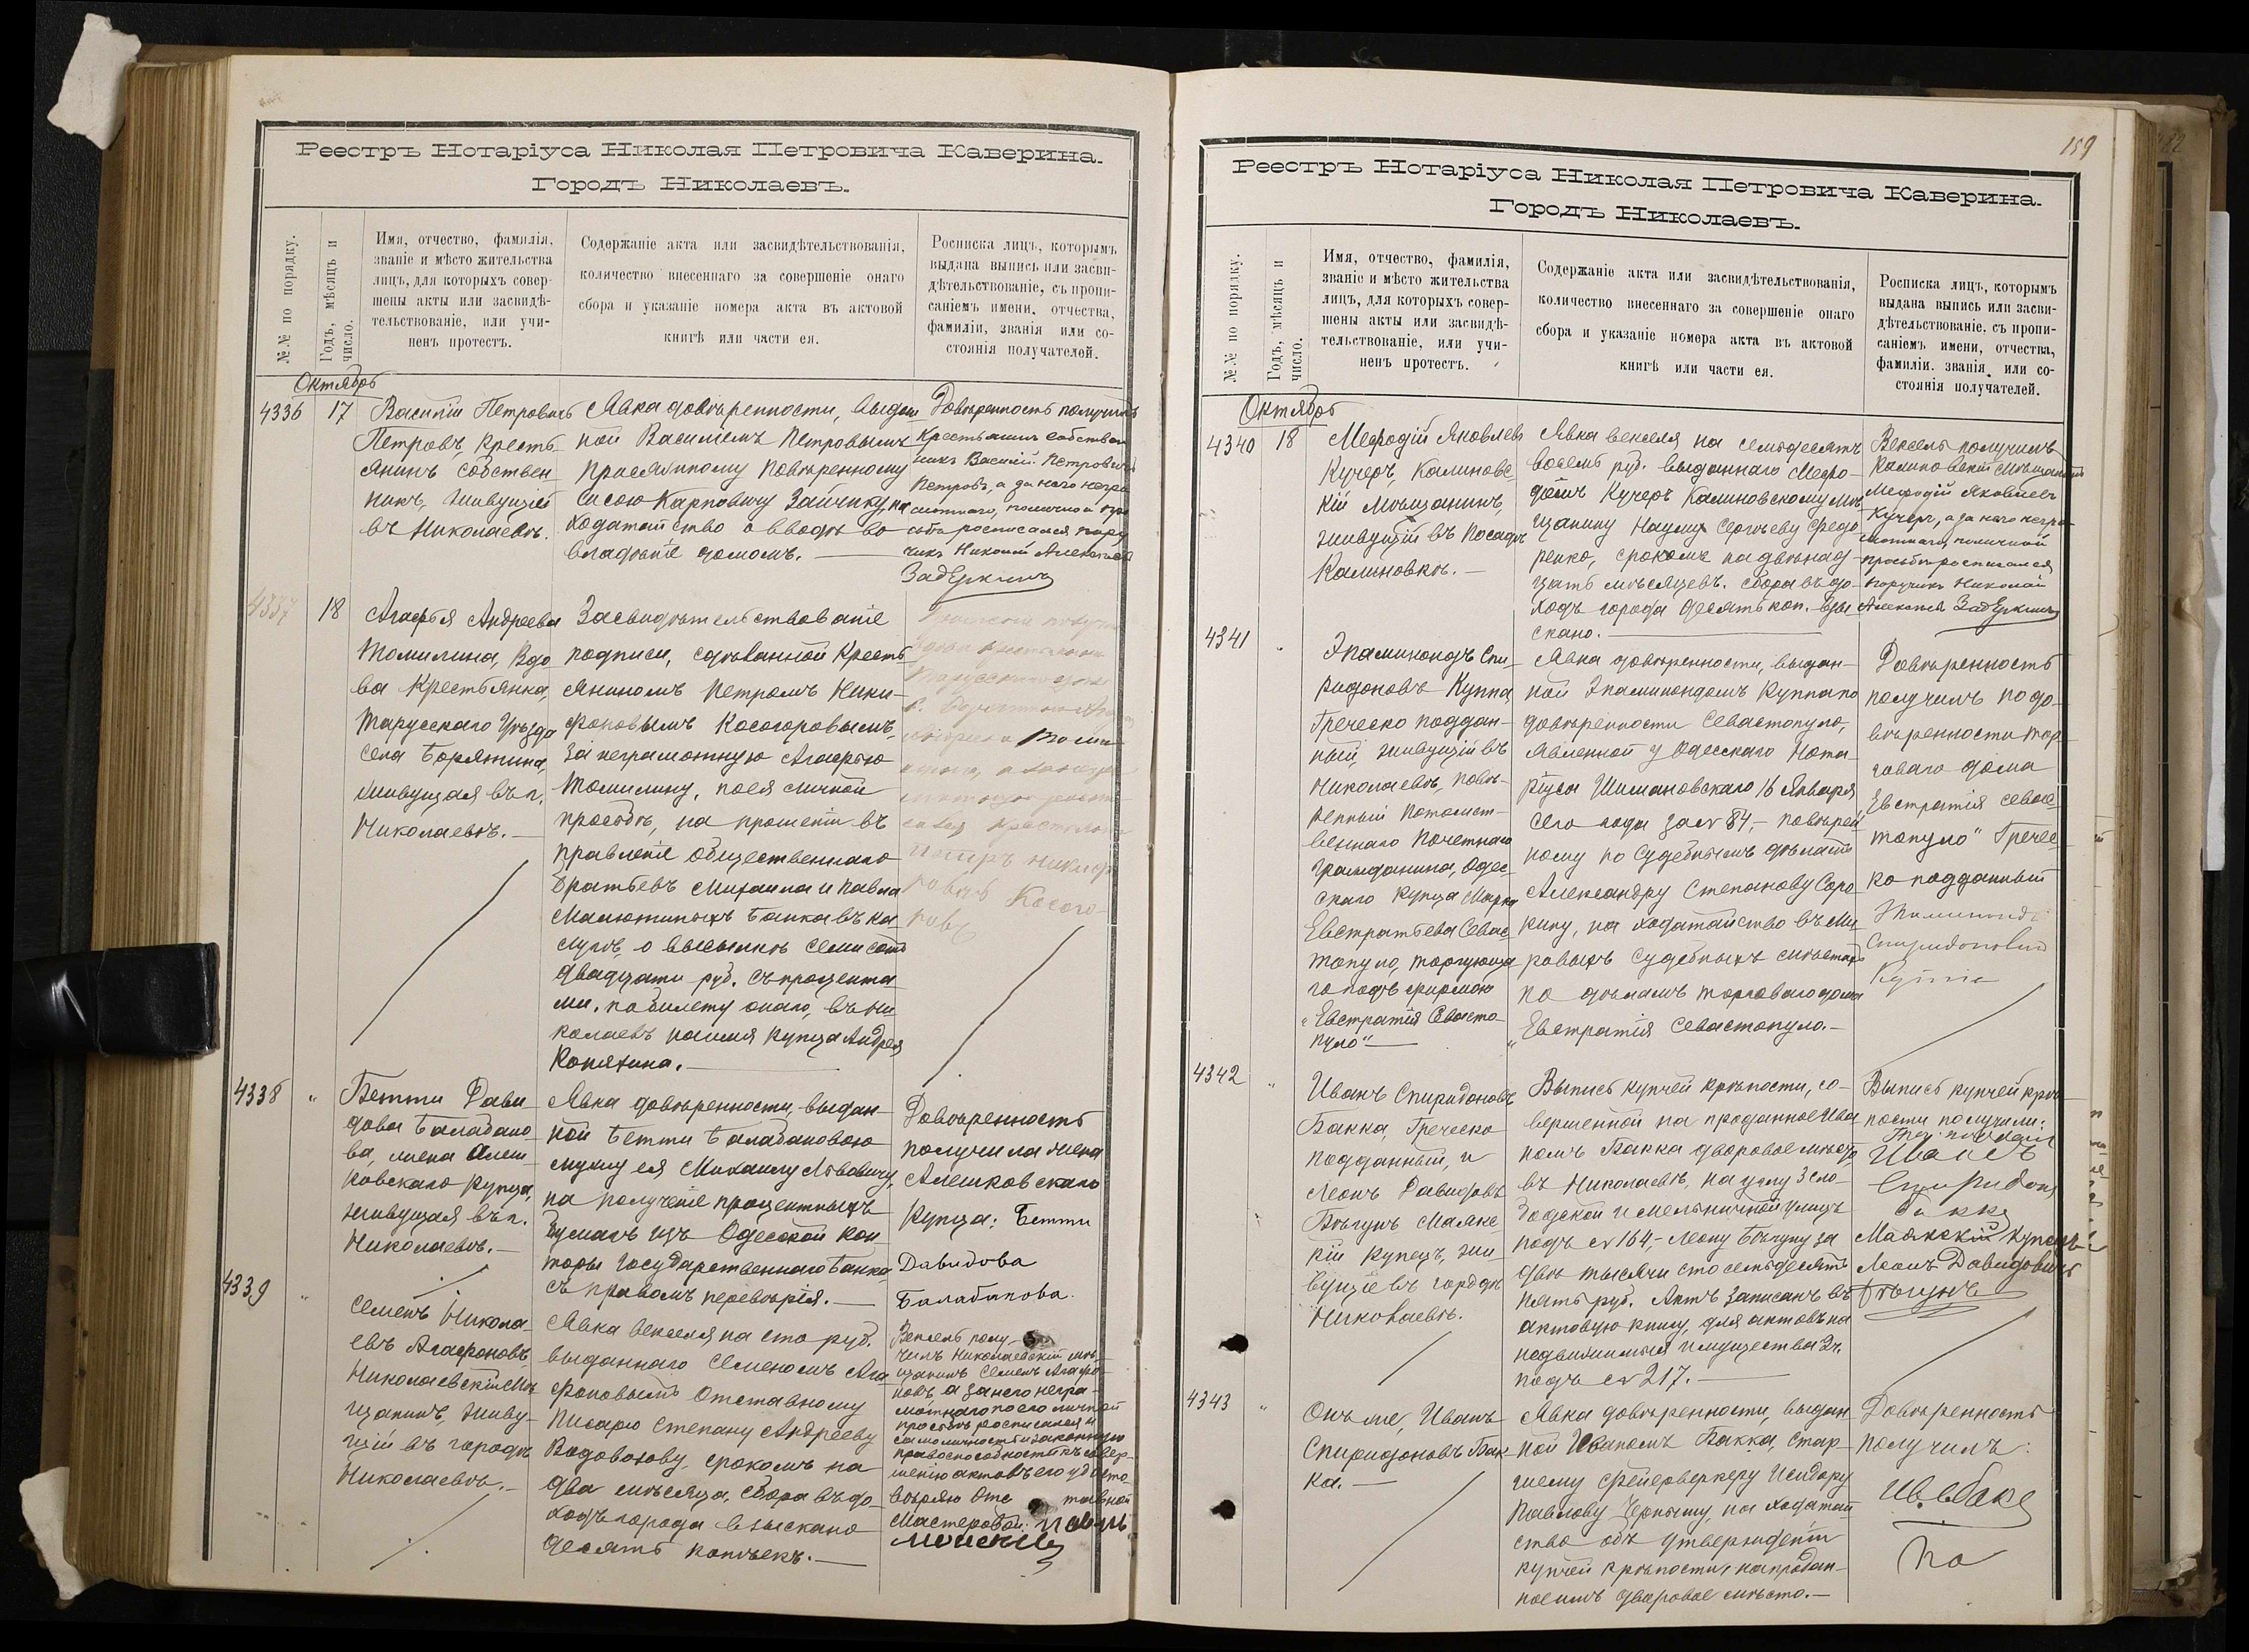 Реестръ Нотаріуса Николая Петровича Каверина.
Городъ Николаевъ.
№№ по порядку.
Годъ, мѣсяцъ и число.
Имя, отчество, фамилія,
званіе и мѣсто жительства
лицъ, для которыхъ совер-
шены акты или засвидѣ-
тельствованіе, или учи-
ненъ протестъ.
Содержаніе акта или засвидѣтельствованія,
количество внесеннаго за совершеніе онаго
сбора и указаніе номера акта въ актовой
книгѣ или части ея.
Росписка лицъ, которымъ
выдана выпись или засви-
дѣтельствованіе, съ пропи-
саніемъ имени, отчества,
фамиліи, званія или со-
стоянія получателей.
Октябрь
4336
17
Василій Петровичъ
Петровъ, кресть-
янинъ собствен
никъ, живущій
въ Николаевѣ.
Явка довѣренности, выдан
ной Василіемъ Петровымъ
присяжному повѣренному
Сысою Карповичу Зайчику, на
ходатайство о вводѣ во
владѣніе домомъ.
Довѣренность получилъ
Крестьянинъ собствен
никъ Василій Петровичъ
Петровъ, а за него негра
мотнаго, по личной прось
бѣ росписался пору
чикъ Николай Алексѣевъ
Задеркинъ
4337
18
Агафья Андреева
Томилина, вдо
ва крестьянка,
Тарусскаго уѣзда
села Борятина,
живущая въ г.
Николаевѣ.
Засвидѣтельствованіе
подписи, сдѣланной кресть
яниномъ Петромъ Ники-
форовымъ Косогоровымъ,
за неграмотную Агафью
Томилину, по ея личной
просьбѣ, на прошеніи въ
правленіе общественнаго
братьевъ Михаила и Павла
Малютиныхъ банка въ Ка
лугѣ, о высылкѣ семи сотъ
двадцати руб. съ процента
ми, по билету онаго, въ Ни
колаевъ на имя купца Андрея
Конятина.
Томи-
Петръ Никиф
ровъ Косого-
ровъ
4338
"
Бетти Дави-
дова Балабано-
ва, жена Алеш
ковскаго купца,
живущая въ г.
Николаевѣ.
Явка довѣренности, выдан-
ной Бетти Балабановою
мужу ея Михаилу Львовичу,
на полученіе процентныхъ
бумагъ изъ Одесской кон
торы Государственнаго банка
съ правомъ перевѣрія.
Довѣренность
получила жена
Алешковскаго
купца: Бетти
Давидова
Балабанова.
4339
"
Семенъ Никола-
евъ Агафоновъ,
Николаевскій мѣ
щанинъ, живу-
щій въ городѣ
Николаевѣ.
Явка векселя на сто руб.
выданнаго Семеномъ Ага
фоновымъ отставному
писарю Степану Андрееву
Водовозову, срокомъ на
два мѣсяца, сбора въ до-
ходъ города взыскано
десять копѣекъ.
Вексель полу-
чилъ Николаевскій мѣ-
щанинъ Семенъ Агафо-
новъ а за него негра-
мотнаго по его личной
просьбѣ росписался и
самоличность и законную
правоспособность къ совер-
шенію актовъ его удосто
вѣряю отс тавной
Мастеровой:
159
Реестръ Нотаріуса Николая Петровича Каверина.
Городъ Николаевъ.
№№ по порядку.
Годъ, мѣсяцъ и число.
Имя, отчество, фамилія,
званіе и мѣсто жительства
лицъ, для которыхъ совер-
шены акты или засвидѣ-
тельствованіе, или учи-
ненъ протестъ.
Содержаніе акта или засвидѣтельствованія,
количество внесеннаго за совершеніе онаго
сбора и указаніе номера акта въ актовой
книгѣ или части ея.
Росписка лицъ, которымъ
выдана выпись или засви-
дѣтельствованіе, съ пропи-
саніемъ имени, отчества,
фамиліи, званія или со-
стоянія получателей.
Октябрь
4340
18
Мефодій Яковлевъ
Кучеръ, Калиновс
кій мѣщанинъ,
живущій въ посадѣ
Калиновкѣ.
Явка векселя на семьдесятъ
восемь руб. выданнаго Мефо-
діемъ Кучеръ Калиновскому мѣ
щанину Науму Сергѣеву Федо
ренко, срокомъ на двѣнад-
цать мѣсяцевъ. Сбора въ до-
ходъ города десять коп. взы
скано.
Вексель получилъ
Калиновскій мѣщанинъ
Мефодій Яковлевъ
Кучеръ, а за него негра-
мотнаго, по личной
просьбѣ росписался
поручикъ Николай
Алексѣевъ Задеркинъ
4341
"
Эпаминондъ Спи-
ридоновъ Куппа,
Греческо поддан-
ный, живущій въ
Николаевѣ, повѣ-
ренный потомст-
веннаго почетнаго
гражданина, Одес-
скаго купца Марка
Евстратьева Севас
топуло, торгующа
го подъ фирмою
"Евстратія Севасто
пуло"
Явка довѣренности, выдан-
ной Эпаминондомъ Куппа по
довѣренности Севастопуло,
явленной у Одесскаго Нота-
ріуса Шимановскаго 16 Января
сего года за № 84,- повѣрен
ному по судебнымъ дѣламъ
Александру Степанову Соро
кину, на ходатайство въ ми
ровыхъ судебныхъ мѣстахъ
по дѣламъ торговаго дома
"Евстратія Севастопуло.-
Довѣренность
получилъ по до-
вѣренности тор-
говаго дома
Евстратія Севас-
топуло" Гречес-
ко подданный
Эпаминондъ
Спиридоновичъ
Куппа
4342
"
Иванъ Спиридоновъ
Бакка, Греческо
подданный, и
Леонъ Давидовъ
Бѣгунъ Маякс
кій купецъ, жи
вущіе въ городѣ
Николаевѣ.
Выпись купчей крѣпости, со-
вершенной на проданное Ива
номъ Бакка дворовое мѣсто,
въ Николаевѣ, на углу 3 сло-
бодской и Мельничной улицъ
подъ № 164,- Леону Бѣгуну за
двѣ тысячи сто семьдесятъ
пять руб. Актъ записанъ въ
актовую книгу, для актовъ на
недвижимыя имущества 2 ч.
подъ № 217.
Выпись купчей крѣ-
пости получили:
Иванъ
Спиридонъ
Бакка
Маякскій купецъ
Леонъ Давидовичъ
Бѣгунъ
4343
"
Онъ же, Иванъ
Спиридоновъ Бак-
ка.
Явка довѣренности, выдан
ной Иваномъ Бакка, стар-
шему фейерверкеру Исидору
Павлову Черныму, на ходатай
ство объ утвержденіи
купчей крѣпости, на продан-
ное имъ дворовое мѣсто.
Довѣренность
получилъ: